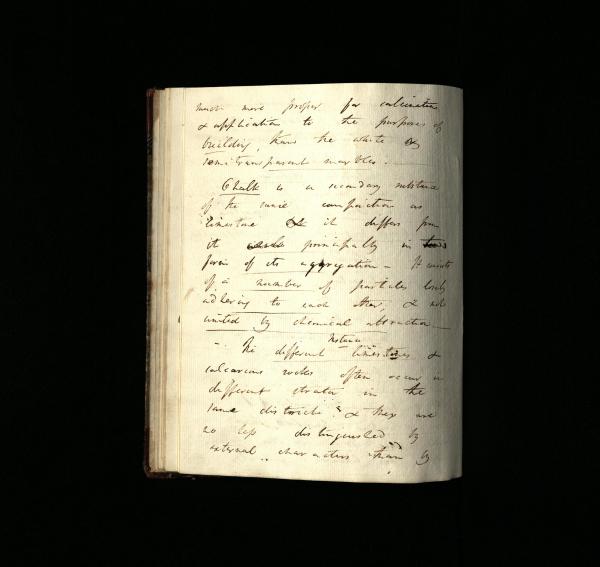 much more proper for calcination
& application to the purposes of
building, than the white &
semitransparent marbles.
Chalk is a secondary substance
of the same composition as
limestone & it differs from
it principally in
form of its aggregation – It consists
of a number of particles loosely
adhering to each other, & not
united by chemical attraction
Instance
– The different limestones &
calcareous rocks often occur in
different strata in the
same districts & they are
no less distinguished by
external characters than by